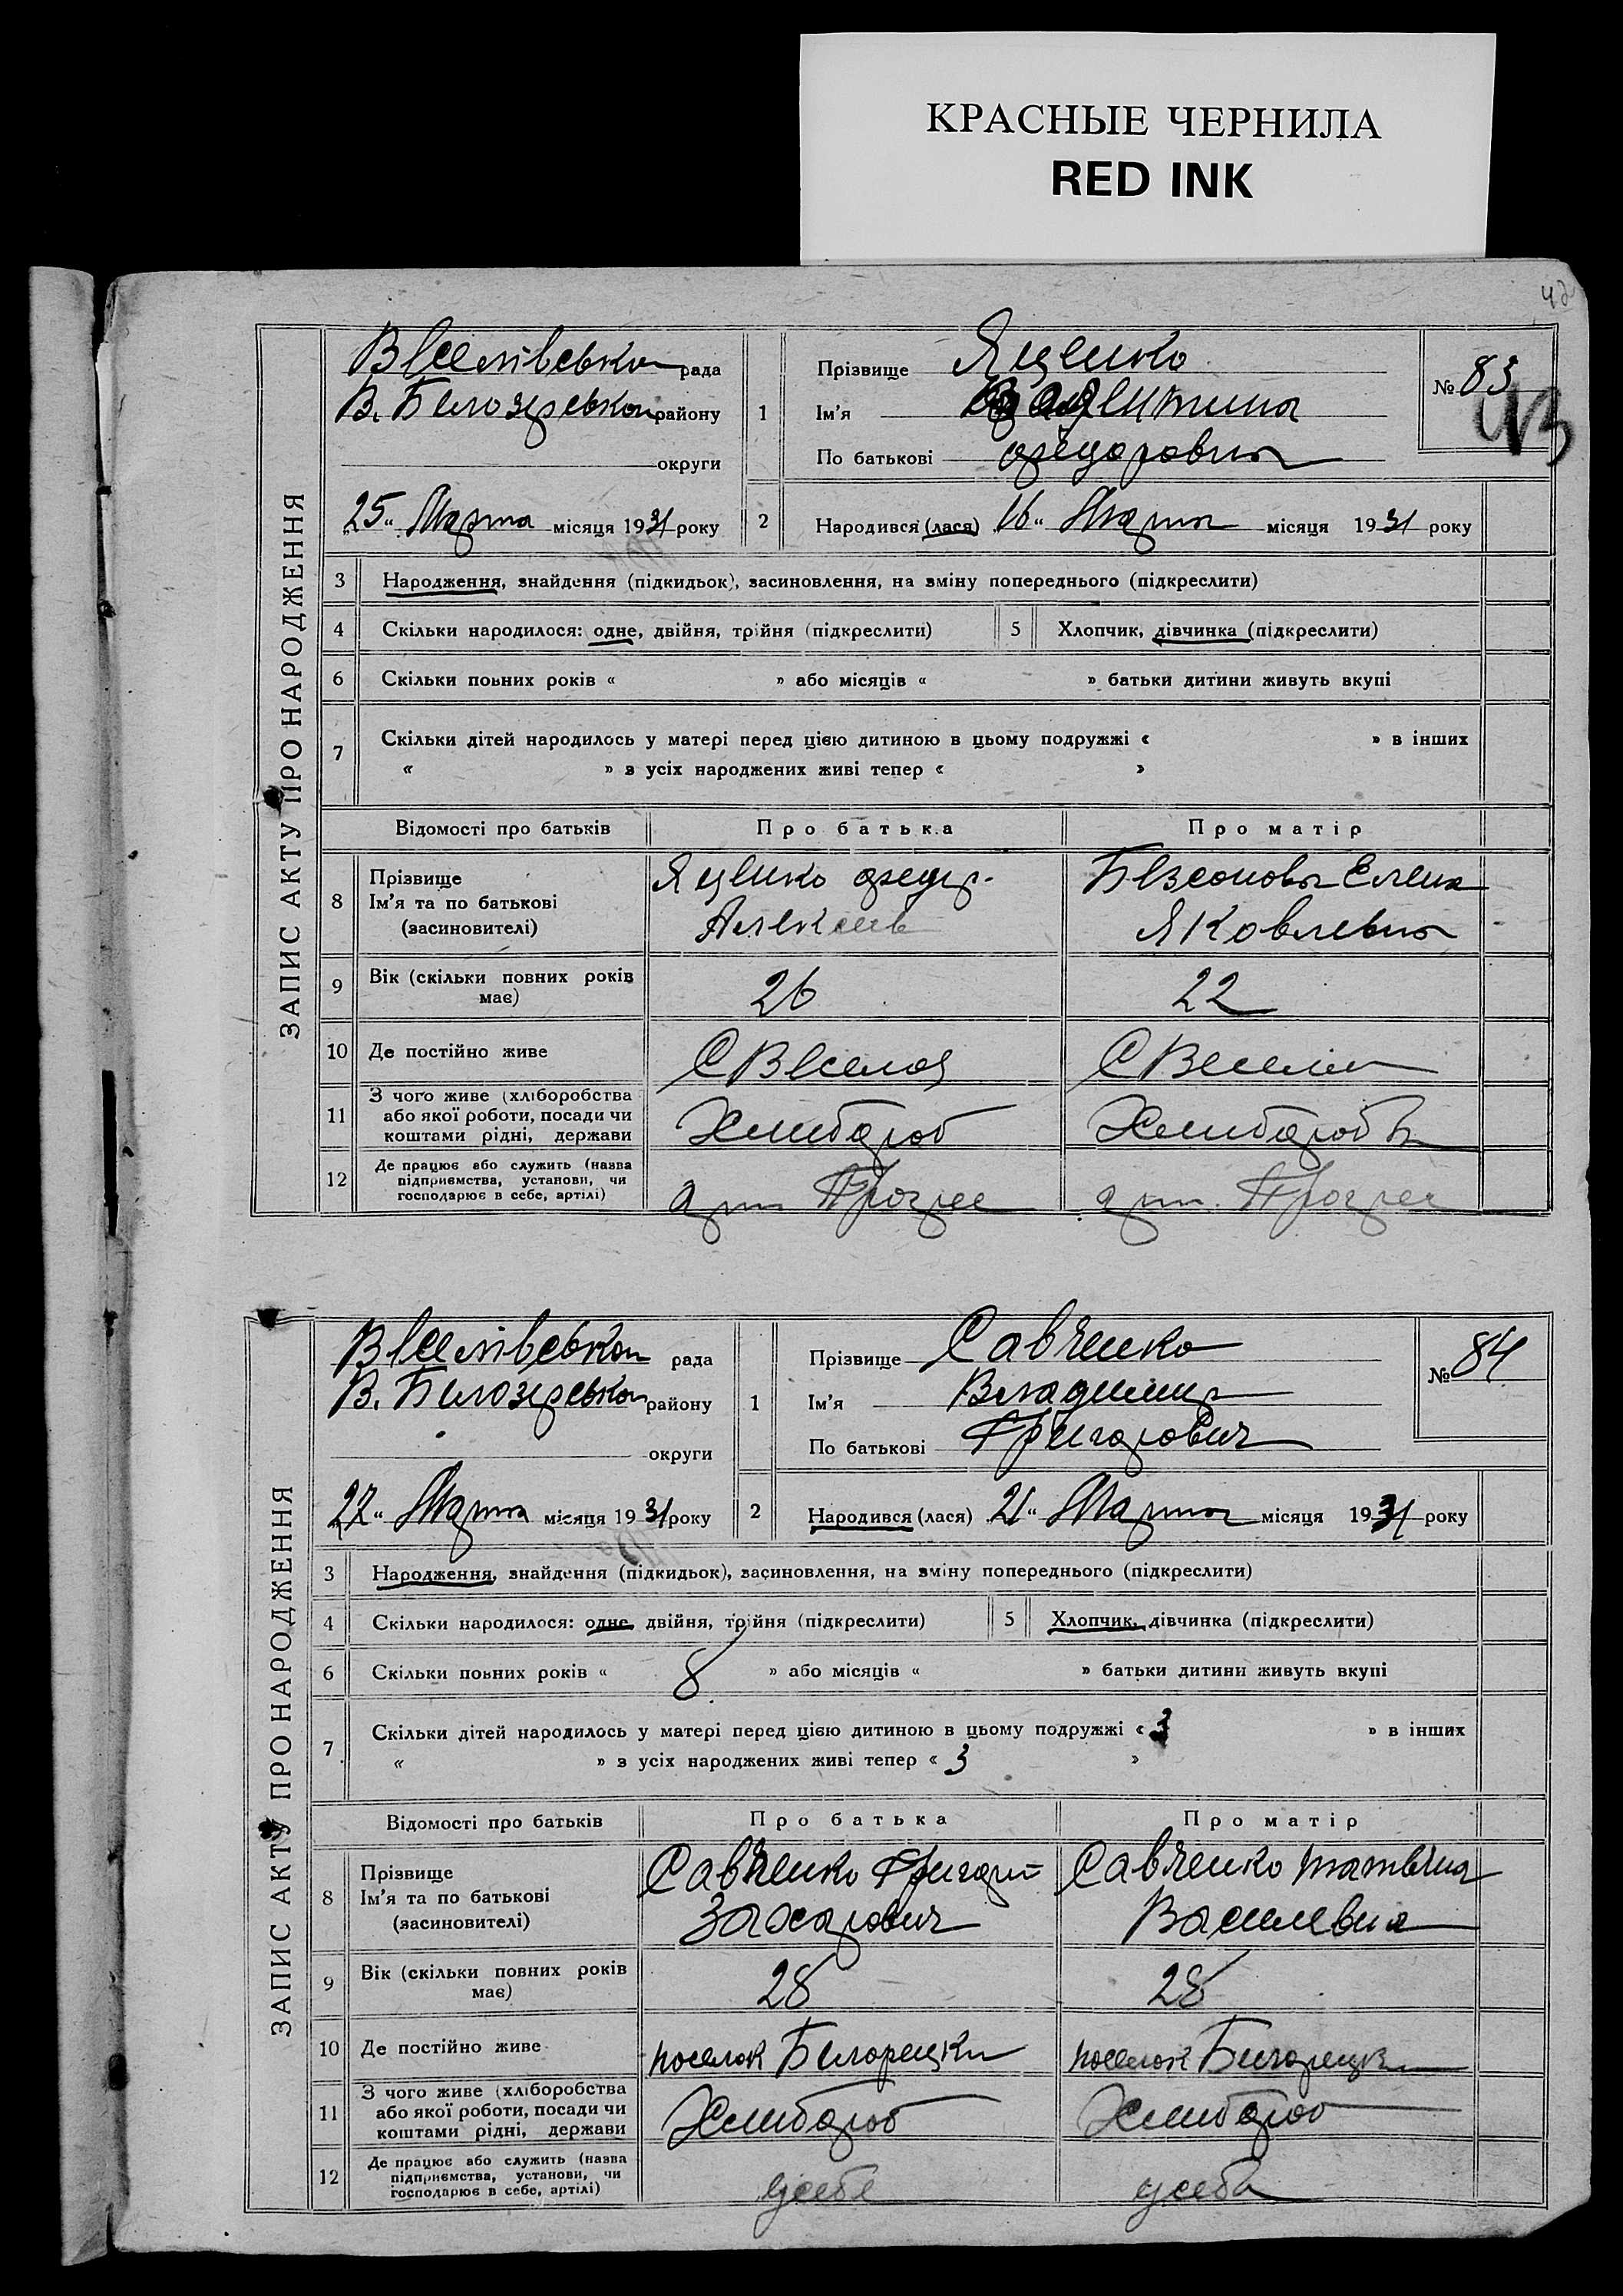 КРАСНЫЕ ЧЕРНИЛА
RED INK
42
ЗАПИС АКТУ ПРО НАРОДЖЕННЯ
Веселівська рада
В. Белозерська району
округи
25 „ Марта місяця 1931 року
1
Прізвище Яценко
Ім'я Валентина
По батькові Федоровна
№ 83
2
Народився (лася) 16 „ Марта місяця 1931 року
3 Народження, знайдення (підкидьок), засиновлення, на зміну попереднього (підкреслити)
4 Скільки народилося: одне, двійня, трійня (підкреслити) 5 Хлопчик, дівчинка (підкреслити)
6 Скільки повних років « » або місяців « » батьки дитини живуть вкупі
7 Скільки дітей народилось у матері перед цією дитиною в цьому подружжі « » в інших
« » з усіх народжених живі тепер « »
Відомості про батьків Про батька Про матір
8 Прізвище Ім'я та по батькові (засиновителі)
Яценко Федор.
Алексеев
Безсонова Елена
Яковлевна
9 Вік (скільки повних років має) 26 22
10 Де постійно живе С Веселоя С Веселая
11 З чого живе (хліборобства або якої роботи, посади чи коштами рідні, держави Хлибороб Хлибороб
12 Де працює або служить (назва підприємства, установи, чи господарює в себе, артілі) арт Прогрес арт. Прогрес
ЗАПИС АКТУ ПРО НАРОДЖЕННЯ
Веселівська рада
В. Белозерська району
округи
27 „ Марта місяця 1931 року
1
Прізвище Савченко
Ім'я Владимир
По батькові Григорович
№ 84
2
Народився (лася) 21 „ Марта місяця 1931 року
3 Народження, знайдення (підкидьок), засиновлення, на зміну попереднього (підкреслити)
4 Скільки народилося: одне, двійня, трійня (підкреслити) 5 Хлопчик, дівчинка (підкреслити)
6 Скільки повних років « 8 » або місяців « » батьки дитини живуть вкупі
7 Скільки дітей народилось у матері перед цією дитиною в цьому подружжі « 3 » в інших
« » з усіх народжених живі тепер « 3 »
Відомості про батьків Про батька Про матір
8 Прізвище Ім'я та по батькові (засиновителі)
Савченко Григорий
Захарович
Савченко Татьяна
Василевна
9 Вік (скільки повних років має) 28 28
10 Де постійно живе поселок Белорецки поселок Белорецки
11 З чого живе (хліборобства або якої роботи, посади чи коштами рідні, держави Хлибороб Хлибороб
12 Де працює або служить (назва підприємства, установи, чи господарює в себе, артілі) усебе усеба